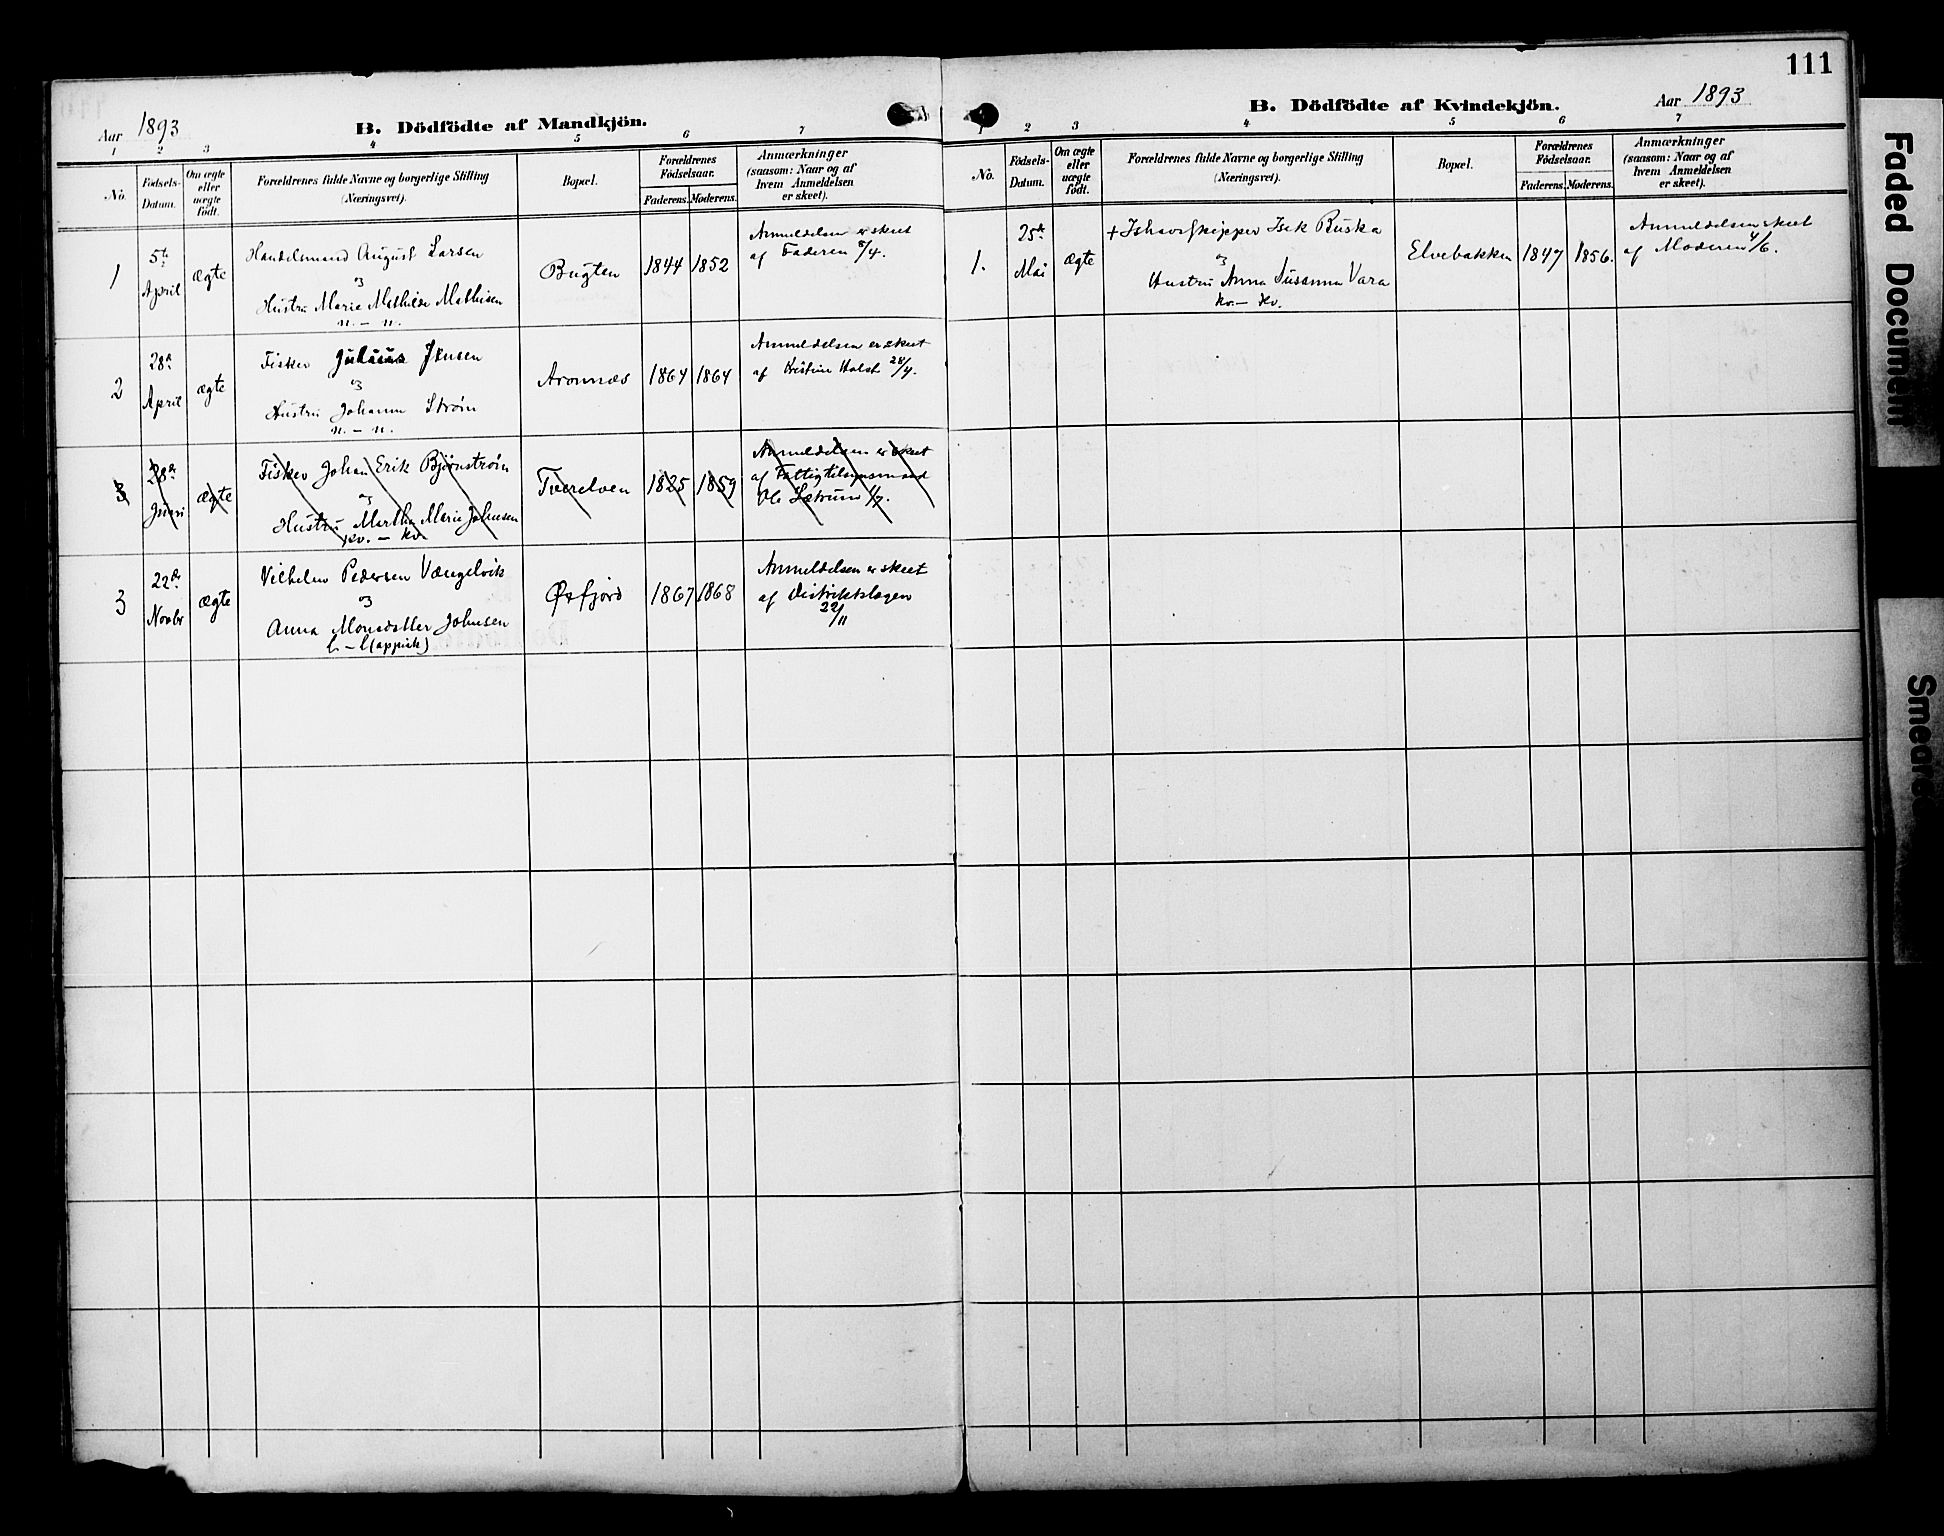 111
Aar 1893
B. Dödfödte af Mandkjön.
1 2 3 4 5 6 7
No.
Födsels-Datum.
Om ægte eller uægte födt.
Forældrenes fulde Navne og borgerlige Stilling
(Næringsvei).
Bopæl.
Forældrenes Födselsaar.
Faderens. Moderens.
Anmærkninger
(saasom: Naar og af
hvem Anmeldelsen
er skeet).
1
5te April
ægte
Handelsmand August Larsen
og
Hustru Marie Mathise Mathisen
n. — n.
Bugten
1844 1852
Anmeldelsen er skeet
af Faderen 8/4.
2
28de April
ægte
Fisker Julius Jensen
og
Hustru Johanne Strøm
n. — n.
Aronnæs
1864 1864
Anmeldelsen er skeet
af Kristine Holst 28/4.
3
28de Juni
ægte
Fisker Johan Erik Bjørnstrøm
og
Hustru Martha Marie Johnsen
kv. — kv.
Tverelven
1825 1859
Anmeldelsen er skeet
af Fattigtilsynsmand
Ole 1/7.
3
22de Novbr
ægte
Vilhelm Pedersen Vængelvik
og
Anna Monsdatter Johnsen
l — l (appisk)
Øxfjord
1867 1868
Anmeldelsen er skeet
af Distriktslægen
22/11
B. Dödfödte af Kvindekjön.
Aar 1893
1 2 3 4 5 6 7
No.
Födsels-Datum.
Om ægte eller uægte födt.
Forældrenes fulde Navne og borgerlige Stilling
(Næringsvei).
Bopæl.
Forældrenes Födselsaar.
Faderens. Moderens.
Anmærkninger
(saasom: Naar og af
hvem Anmeldelsen
er skeet).
1.
25de Mai
ægte
+ Ishavsskipper Isak Ruska
og
Hustru Anna Susanna Vara
kv. — kv.
Elvebakken
1847 1856.
Anmeldelsen skeet
af Moderen 4/6.
Faded Document
Smeared